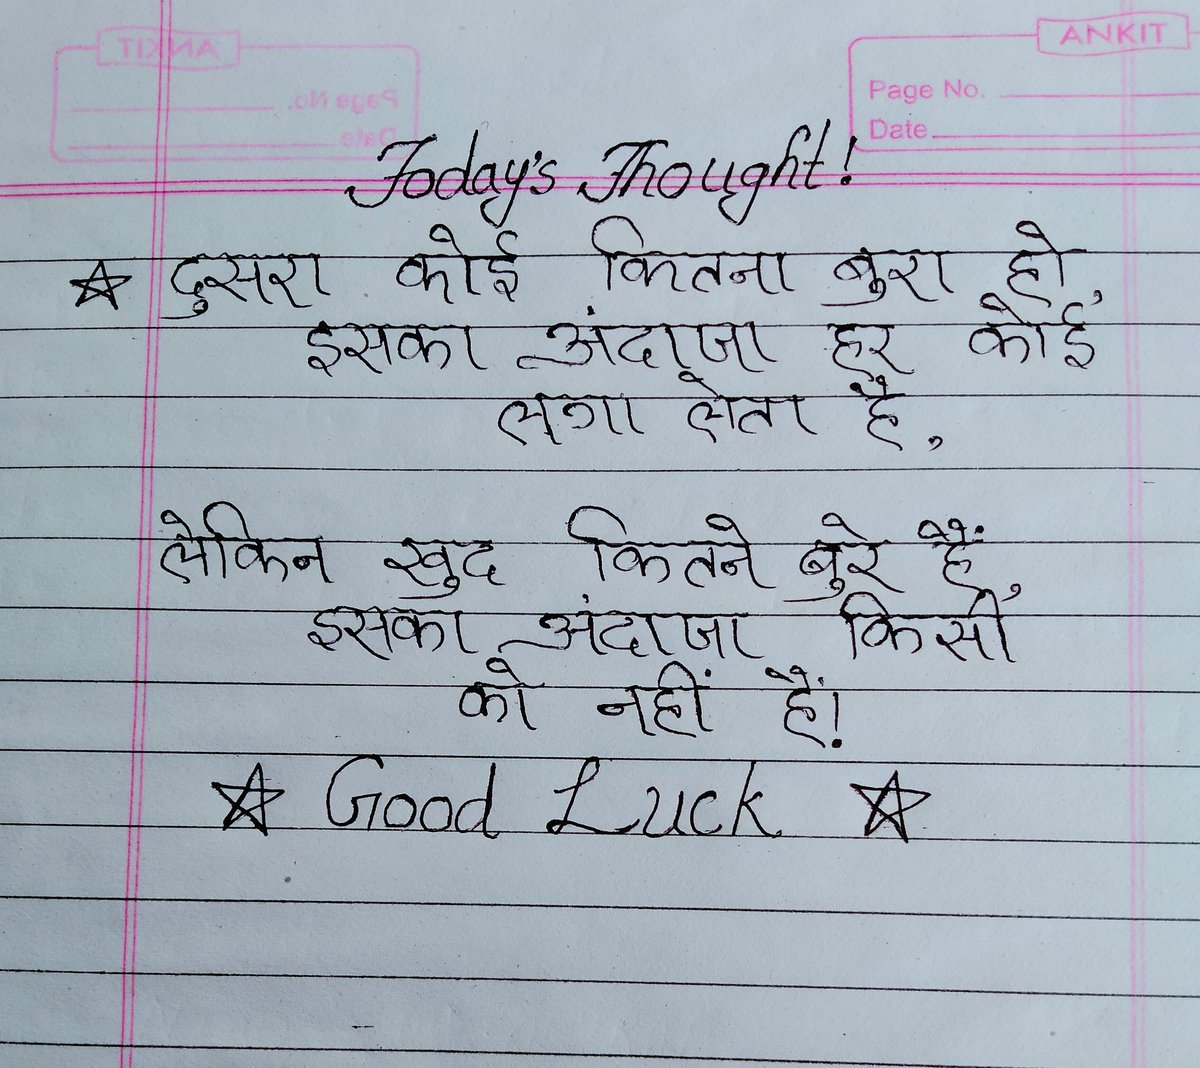 ANKIT
Page No.
Date
Today's Thought!
☆ दुसरा कोई कितना बुरा हो,
इसका अंदाजा हर कोई
लगा लेता है,
लेकिन खुद कितने बुरे हैं,
इसका अंदाजा किसी
को नहीं हैं!
☆ Good Luck ☆